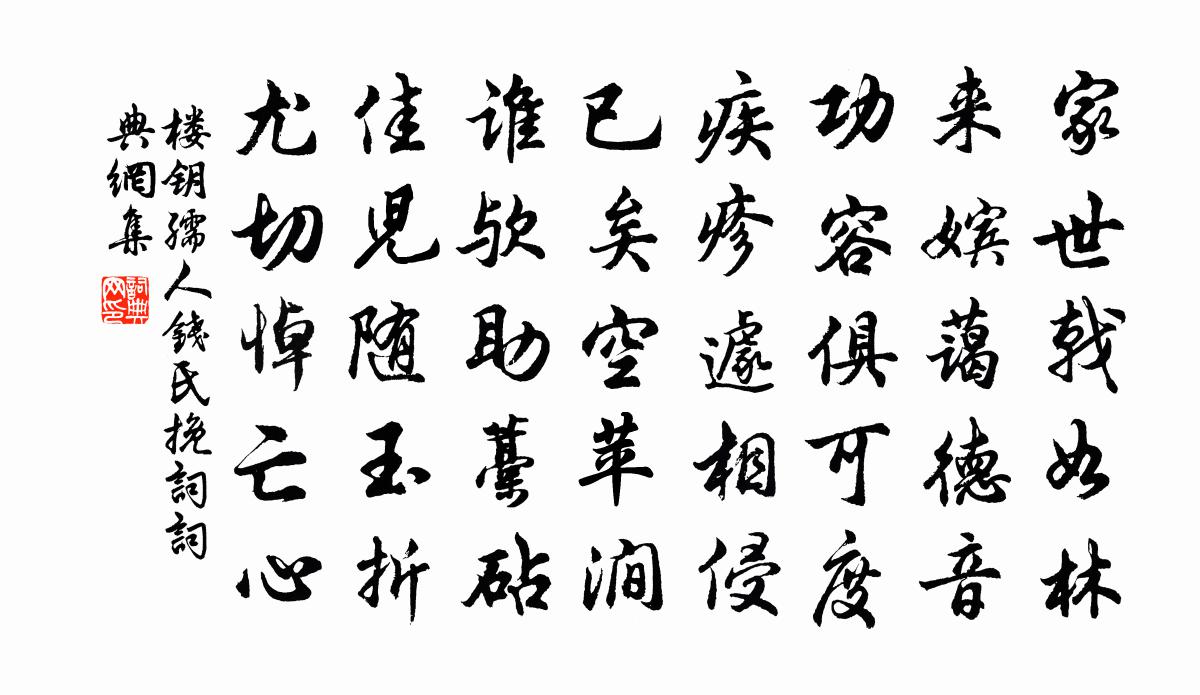 家世戟如林
来嫔蔼德音
功容俱可度
疾疹遽相侵
已矣空苹涧
谁欤助藁砧
佳儿随玉折
尤切悼亡心
楼钥孺人钱氏挽词詞
典網集
詞典网印